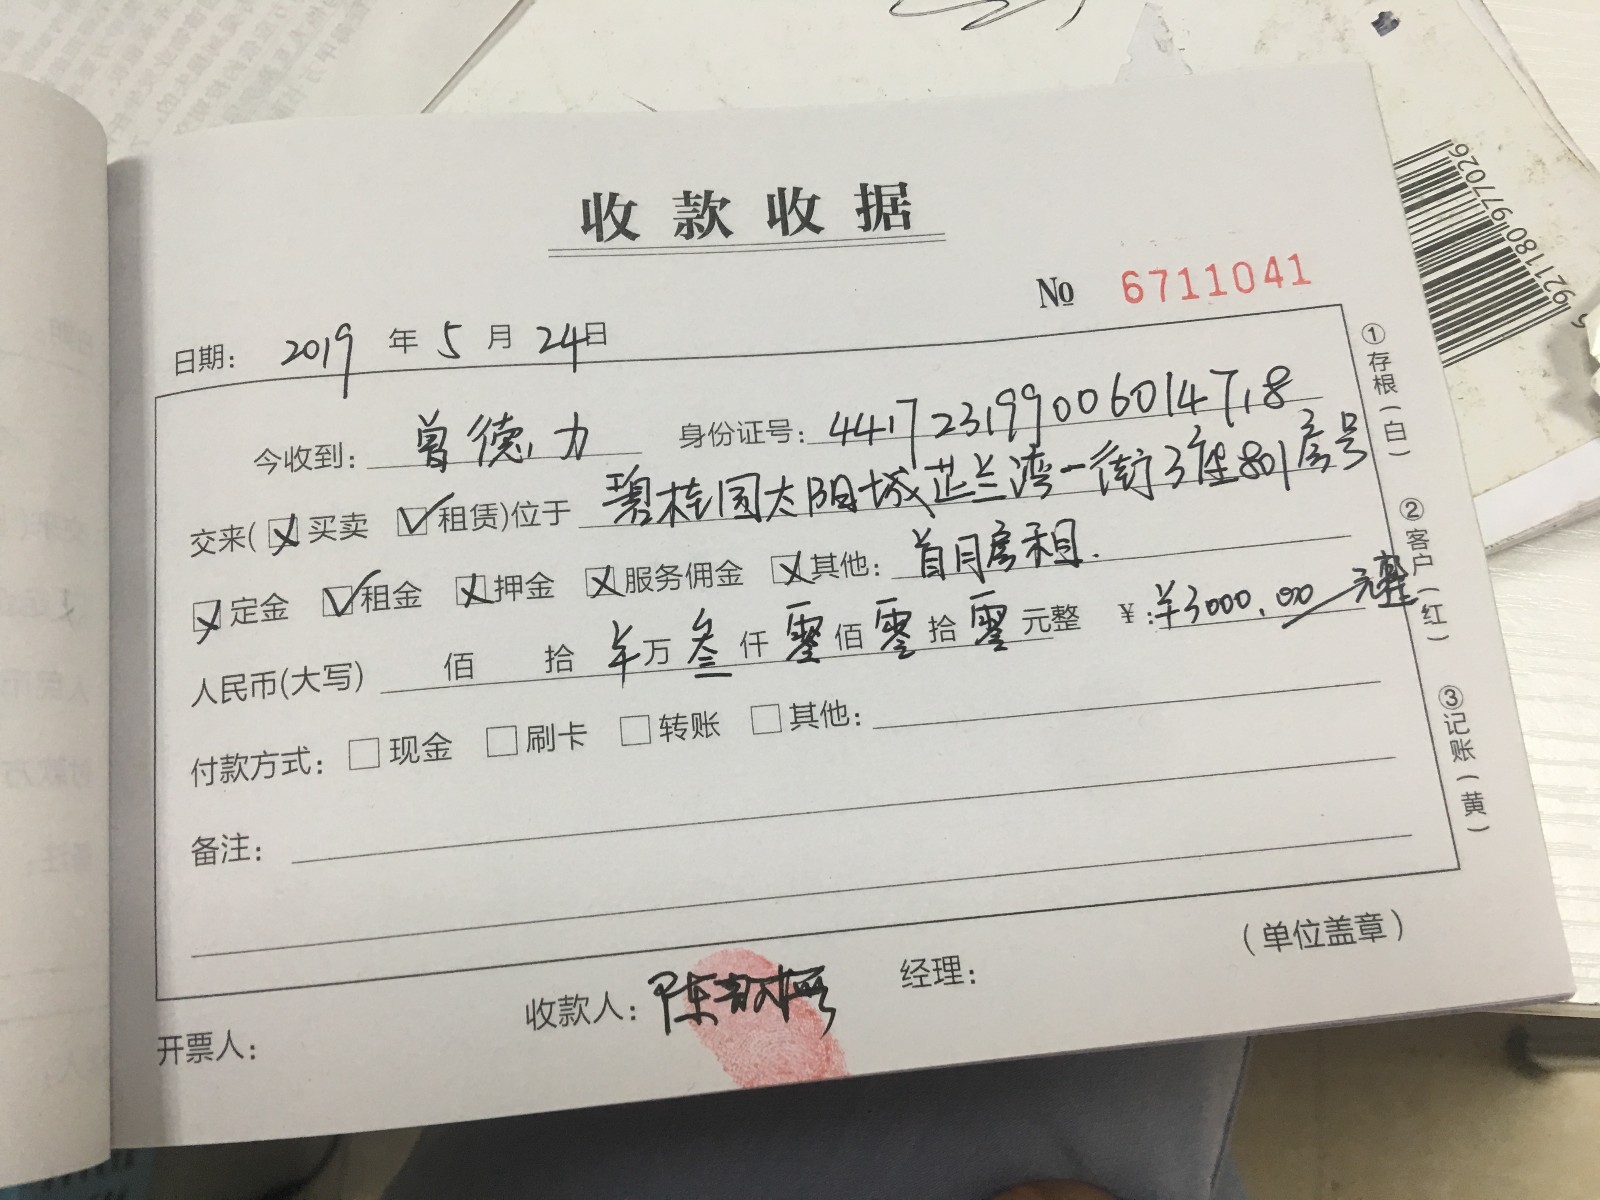 收款收据
№ 6711041
日期: 2019 年 5 月 24日
今收到: 曾德力 身份证号: 441723199006014718
交来( 买卖 租赁)位于 碧桂园太阳城芷兰湾一街3座801房号
定金 租金 押金 服务佣金 其他: 首月房租.
人民币(大写) 佰 拾 万 叁 仟 零 佰 零 拾 零 元整 ¥:¥3000.00 元整
付款方式: 现金 刷卡 转账 其他:
备注:
(单位盖章)
开票人: 收款人: 陈 经理:
①存根(白)
②客户(红)
③记账(黄)
6921180977026